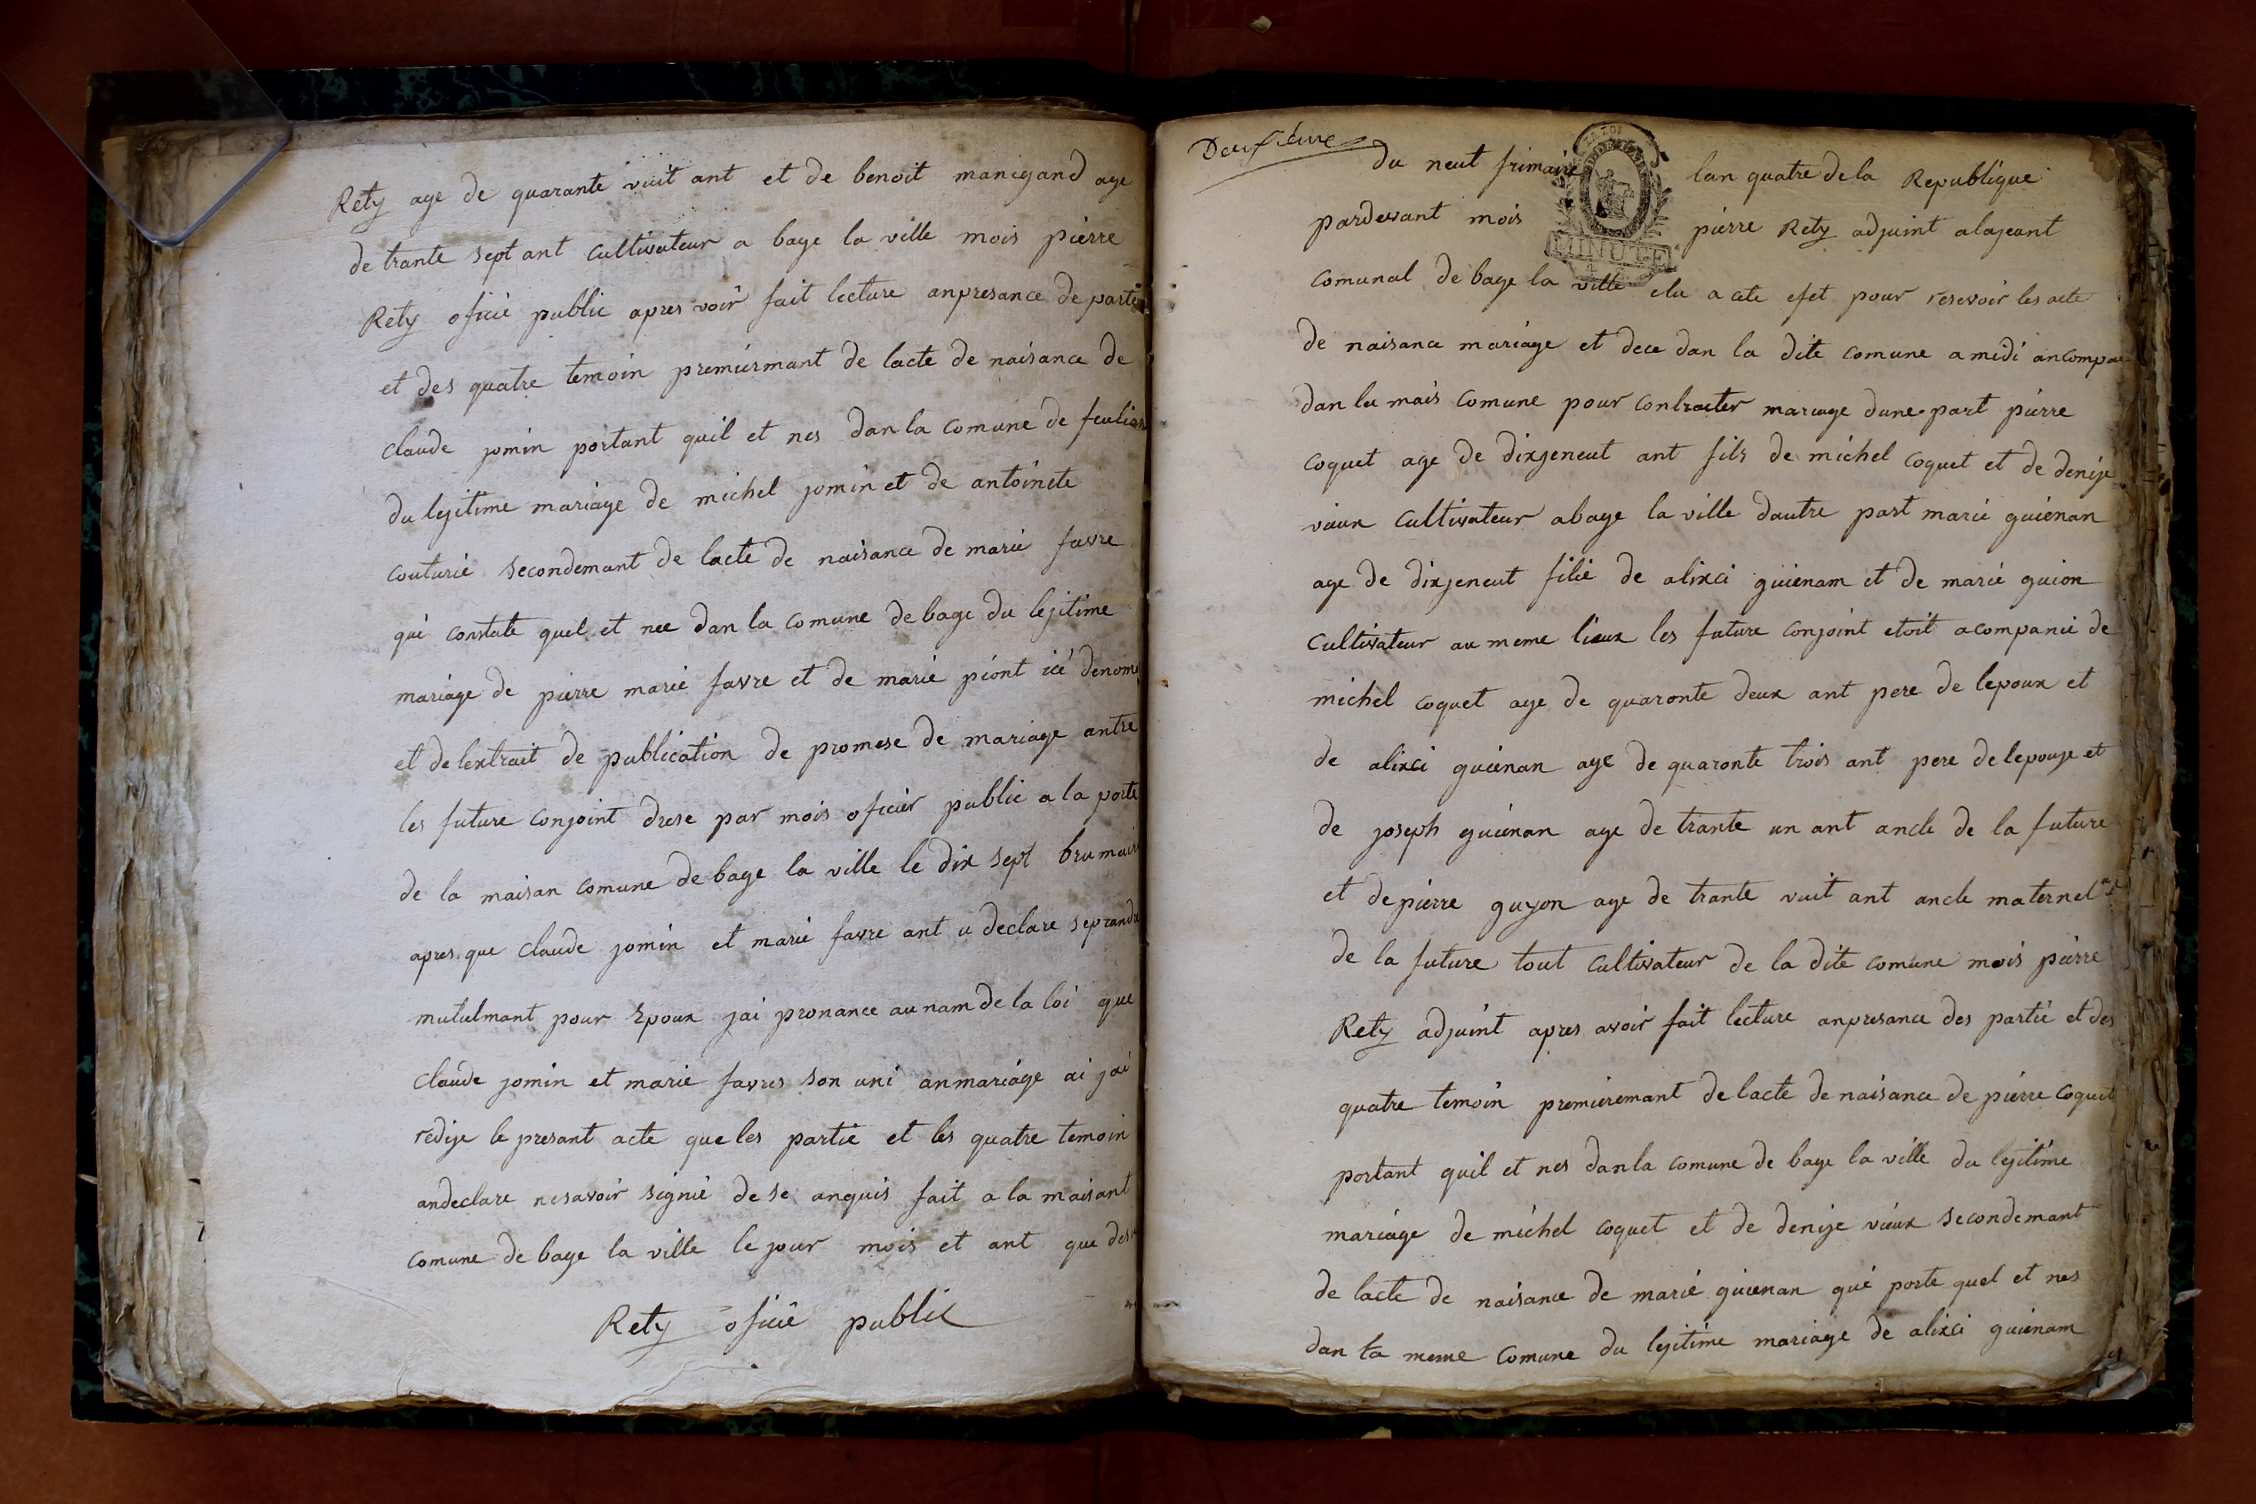 Rety age de quarante vuit ant et de benoit manigand age
de trante sept ant cultivateur a bage la ville mois pierre
Rety oficié public apres voir fait lecture anpresance de partie
et des quatre temoin premiermant de lacte de naisance de
claude jomin portant quil et nes dan la comune de feulian
du legitime mariage de michel jomin et de antoinete
couturié secondemant de lacte de naisance de marie favre
qui constate quel et nee dan la comune de bage du lejitime
mariage de pierre marie favre et de marie piont icé denome
et de lextrait de publication de promese de mariage antre
les future conjoint drese par mois oficier public a la porte
de la maisan comune de bage la ville le dix sept brumaire
apres que claude jomin et marie favre ant u declare seprandre
mutulmant pour Epoux jai pronance au nam de la loi que
claude jomin et marie favres son uni anmariage ai jai
redije le presant acte que les partie et les quatre temoin
andeclare nesavoir signié de se anquis fait a la maisant
comune de bage la ville le jour mois et ant que desu
Rety oficié public
Deuxieme
du neuf frimaire lan quatre de la Republique
pardevant mois pierre Rety adjuint alajeant
MINUTE
comunal de bage la ville elu a cete efet pour resevoir les acte
de naisance mariage et dece dan la dite comune a midi ancompare
dan la mais comune pour contracter mariage dune part pierre
coquet age de dixjeneut ant fils de michel coquet et de denije
vieux cultivateur abage la ville dautre part marie guienan
age de dixjeneut filie de alixci guienam et de marie guion
cultivateur au meme lieux les future conjoint etoit acompanié de
michel coquet age de quaronte deux ant pere de lepoux et
de alixci guienan age de quaronte trois ant pere de lepouje et
de joseph guienan age de trante un ant ancle de la future
et de pierre guyon age de trante vuit ant ancle maternel
de la future tout cultivateur de la dite comune mois pierre
Rety adjuint apres avoir fait lecture anpresance des partie et des
quatre temoin premieremant de lacte de naisance de pierre coquet
portant quil et nes dan la comune de bage la ville du lejitime
mariage de michel coquet et de denije vieux secondemant
de lacte de naisance de marie guienan qui porte quel et nes
dan la meme comune du lejitime mariage de alixci guienam